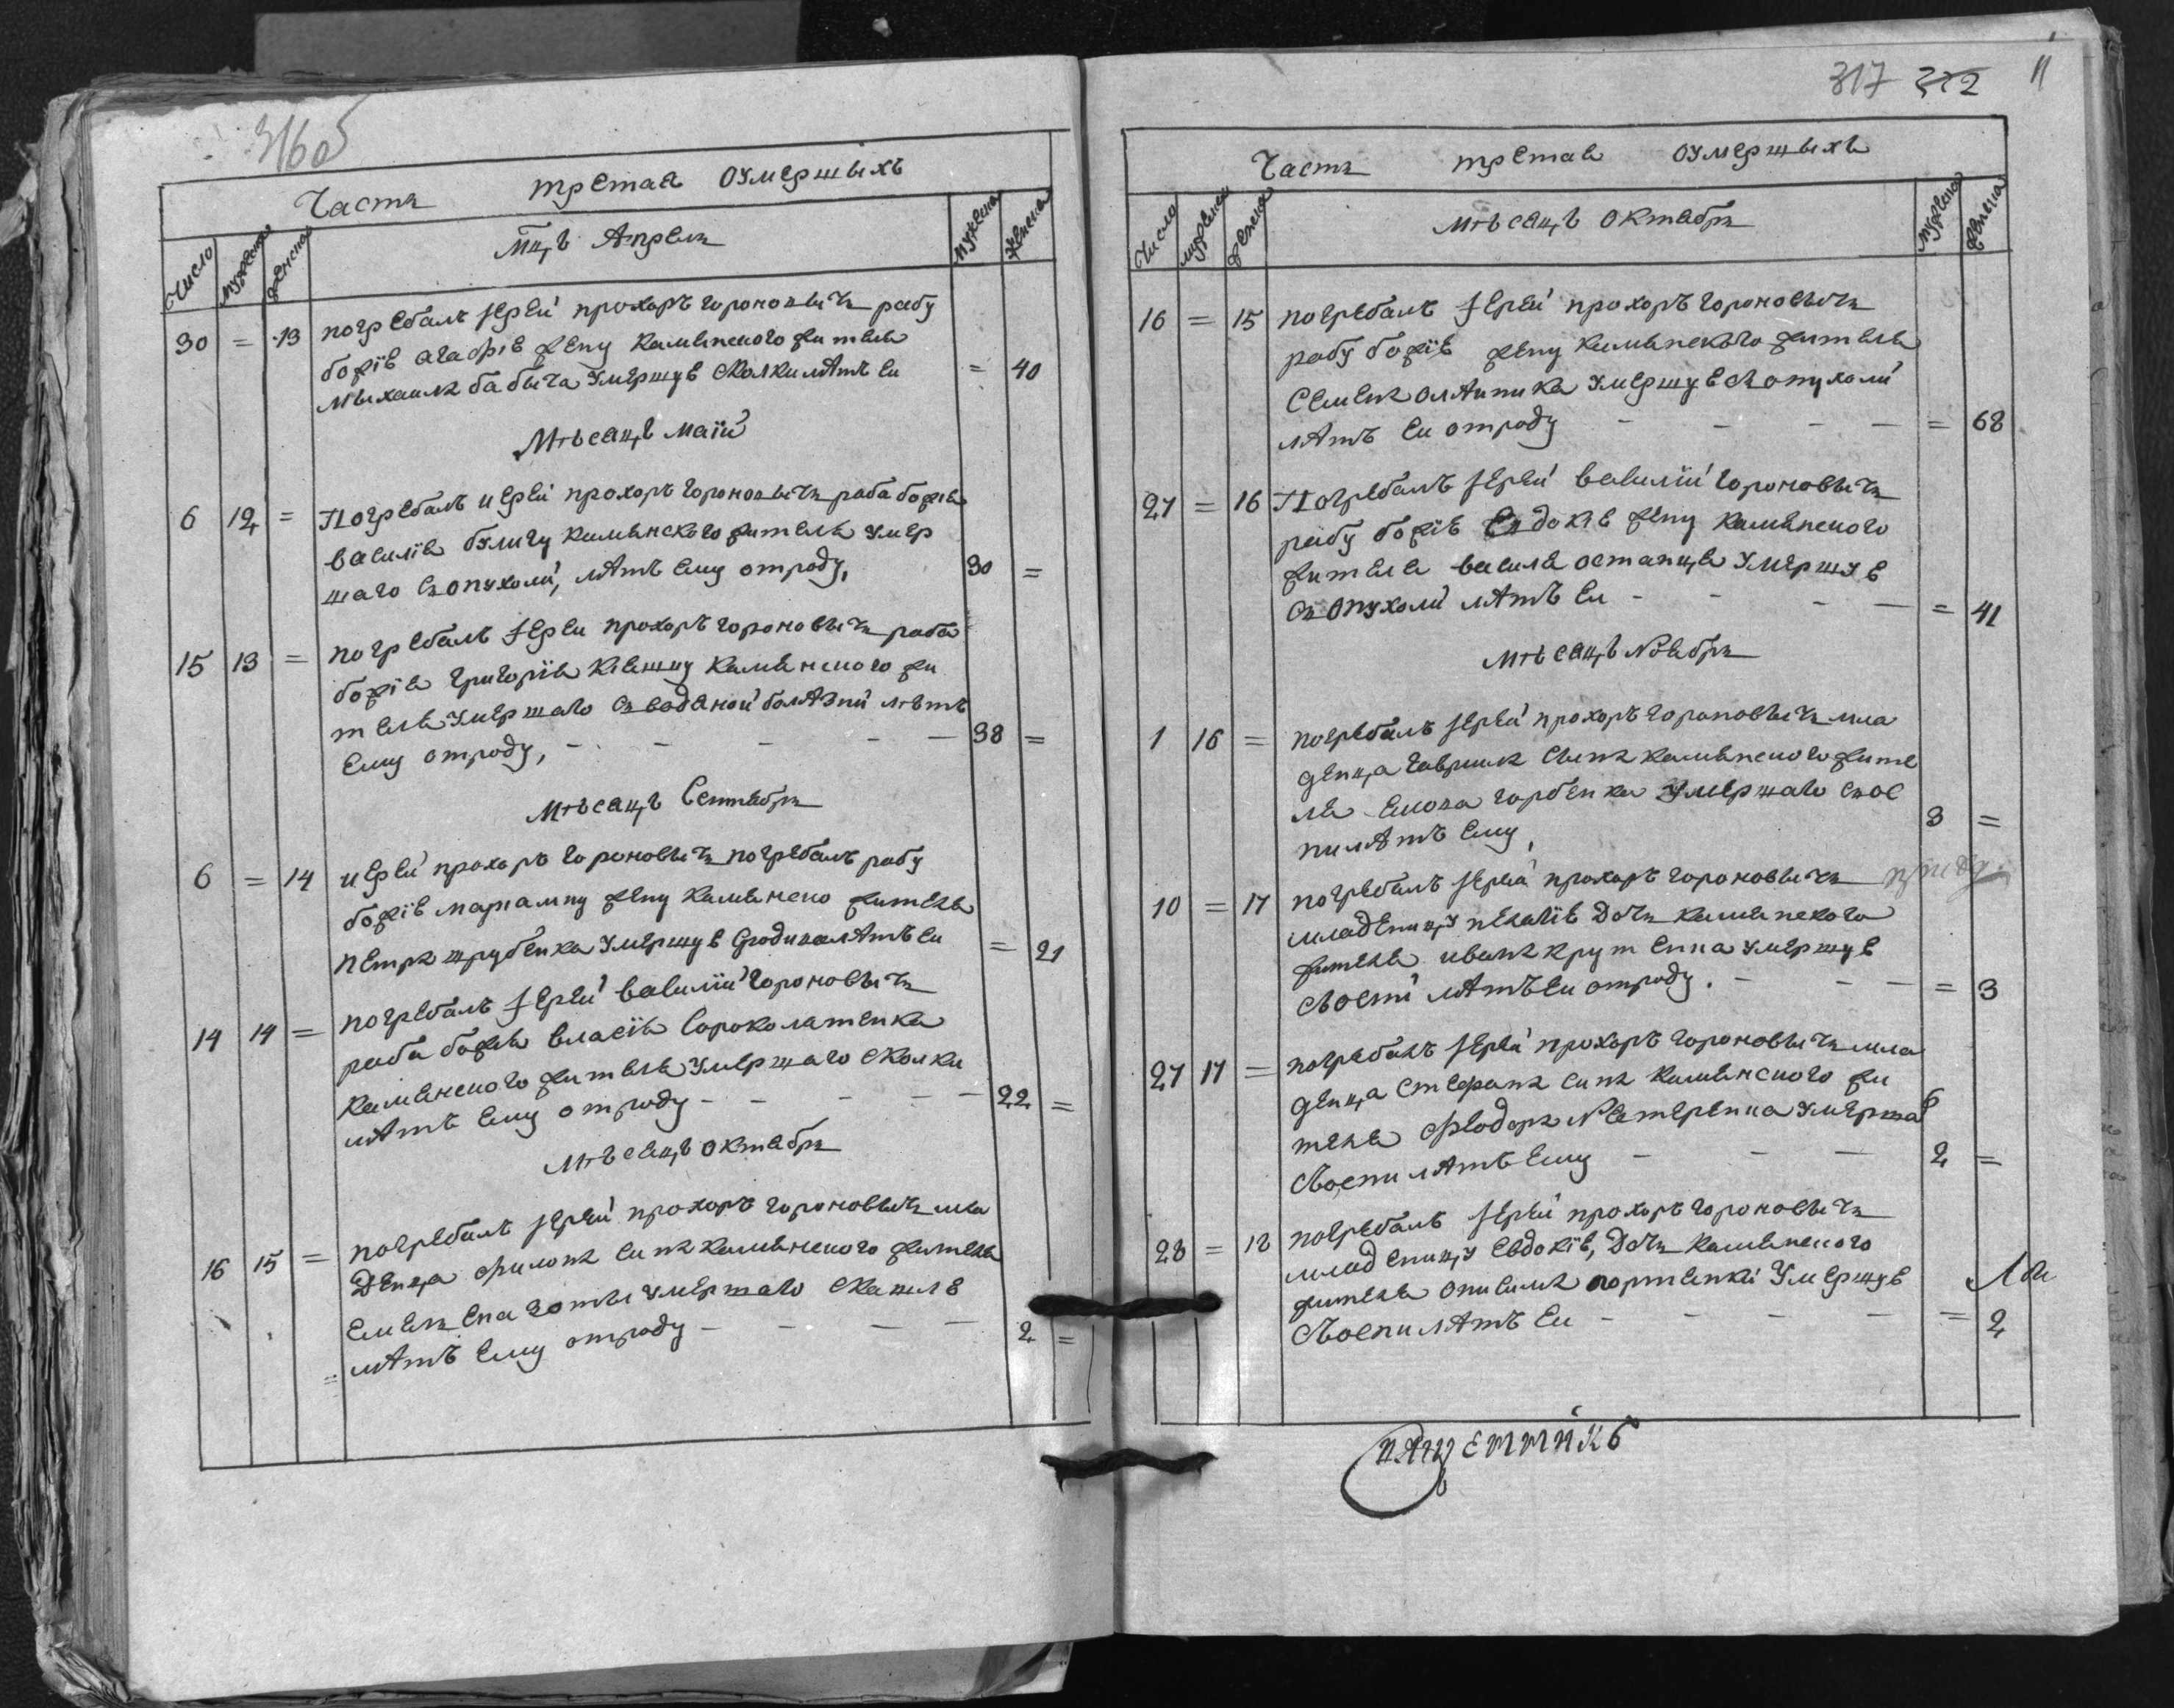 316об
Часть третая оумершыхъ
Число мужеска женска Мцъ Апрель мужеска женска
30 = 13 погребалъ Іерей прохоръ гороновычъ рабу
божію агафію жену каменского жителя
мыхаила бабыча умершую сколки лѣтъ еи = 40
Мѣсяцъ маій
6 12 = Погребалъ иерей прохоръ гороновычъ раба божія
василія булигу каменского жителя умер
шаго съ опухоли, лѣтъ ему отроду, 30 =
15 13 = погребалъ Іереи прохоръ гороновычъ раба
божія григорія кіяшку каменского жи
теля умершаго съ водяной болѣзни лѣтъ
ему отроду, - - - - 38 =
Мѣсяцъ Септябрь
6 = 14 иерей прохоръ гороновычъ погребалъ рабу
божію мариамну жену каменско жителя
петра трубенка умершую сродива лѣтъ еи = 21
14 14 = погребалъ Іерей василій гороновычъ
раба божія власія сороколатенка
каменского жителя умершаго сколки
лѣтъ ему отроду - - - - 22 =
Мѣсяцъ октябрь
16 15 = погребалъ Іерей прохоръ гороновычъ мла
денца филона сина каменского жителя
умершаго скашлю
лѣтъ ему отроду - - - - 2 =
317 322 11
Часть третая оумершыхъ
Число мужеска женска Мѣсяцъ октябрь мужеска женска
16 = 15 погребалъ Іерей прохоръ гороновычъ
рабу божію жену каменского жителя
Семена олѣйника умершую сопухоли
лѣтъ еи отроду - - - - = 68
27 = 16 Погребалъ Іерей василій гороновычъ
рабу божію Евдокію жену каменского
жителя василя остапця умершую
съ опухоли лѣтъ еи - - - - = 41
мѣсяцъ Ноябрь
1 16 = погребалъ Іерей прохоръ гороновычъ мла
денца гаврила сына каменского жите
ля горбенка умершаго съ ос
пи лѣтъ ему, 3 =
10 = 17 погребалъ Іерей прохоръ гороновычъ
младеницу пелагію Дочь каменского
жителя ивана крутенка умершую
сВоспи лѣтъ еи отроду. - - - = 3
27 17 = погребалъ Іерей прохоръ гороновычъ мла
денца Стефана сина каменского жи
теля феодора Нетеренка умерша
сВоспи лѣтъ ему - - - 2 =
28 = 18 погребалъ Іерей прохоръ гороновычъ
младеницу Евдокію, Дочь каменского
жителя умершую
сВоспи лѣтъ еи - - - - = 2